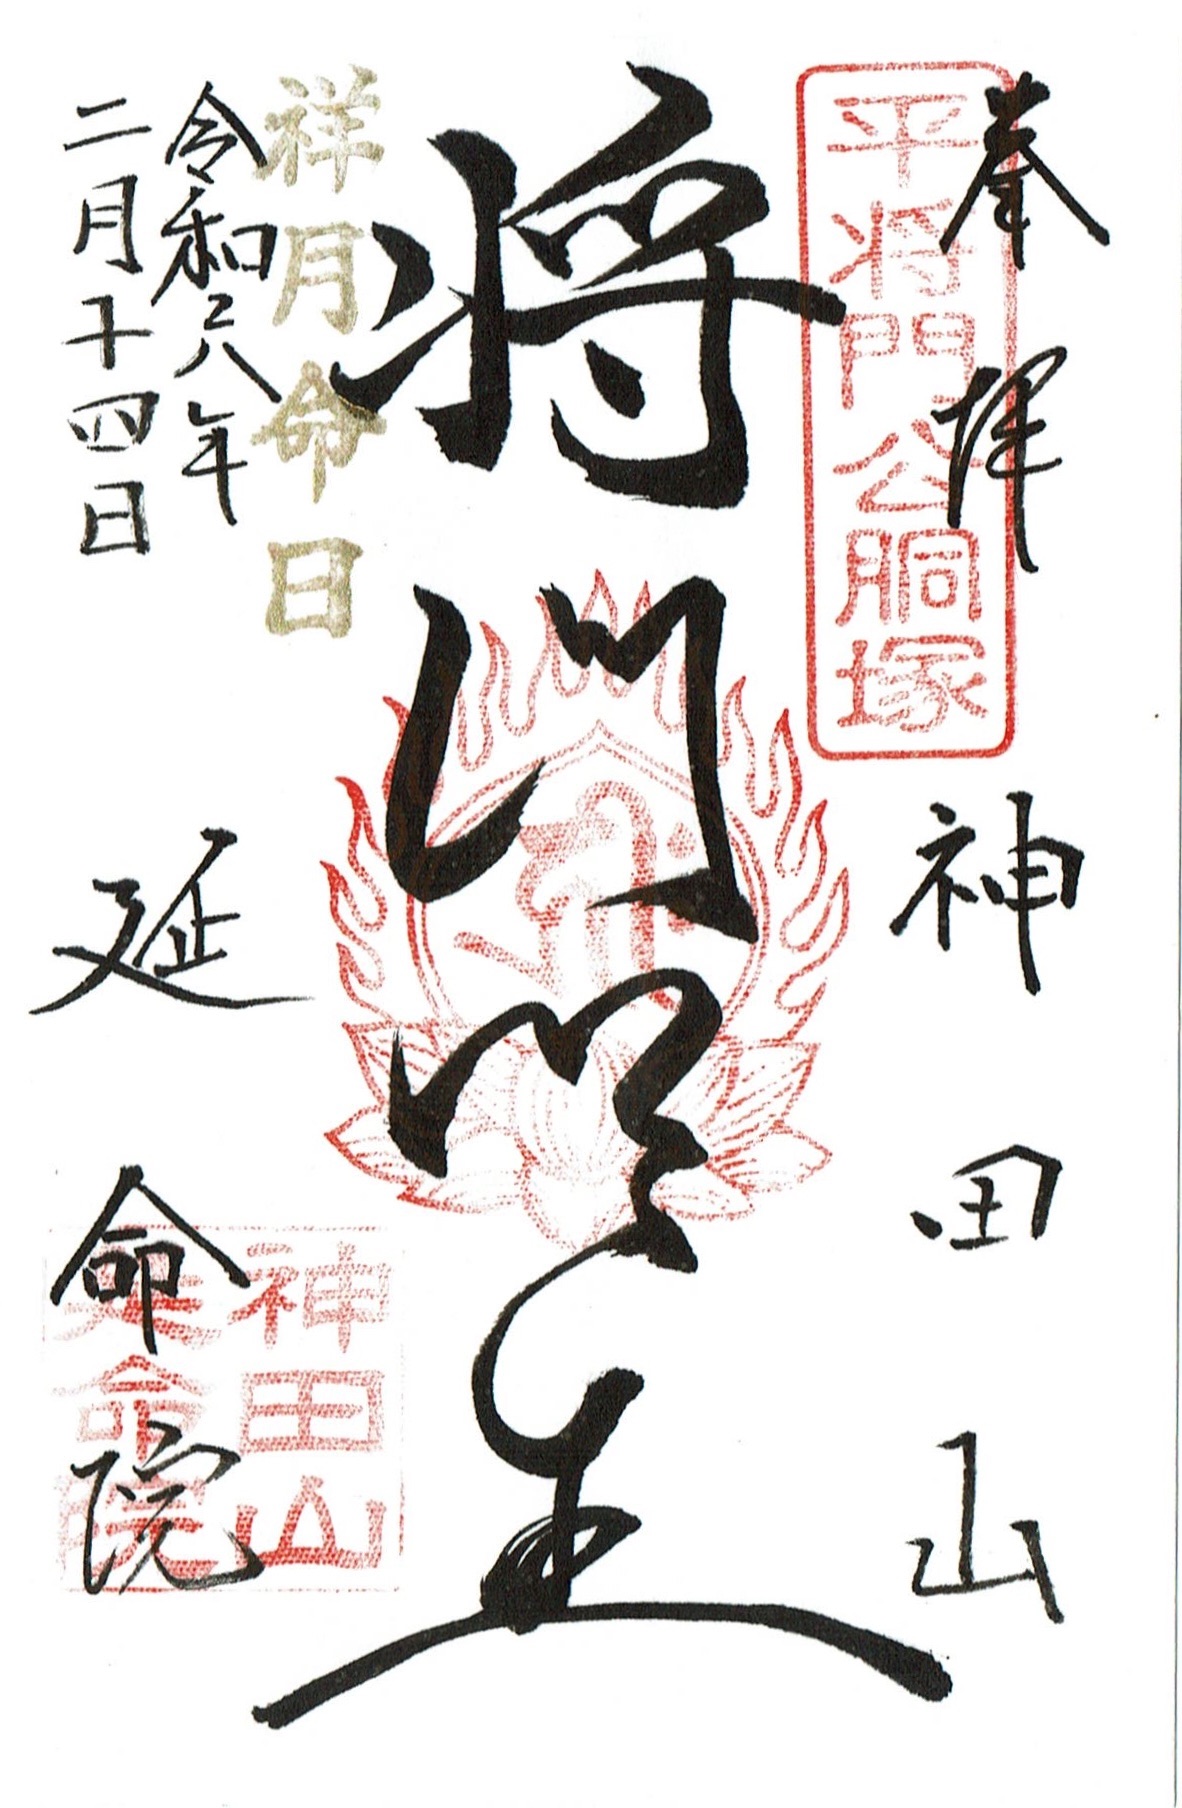 奉拝
神田山
平将門公胴塚
将門明王
祥月命日
令和六年
二月十四日
延命院
神田山
延命院